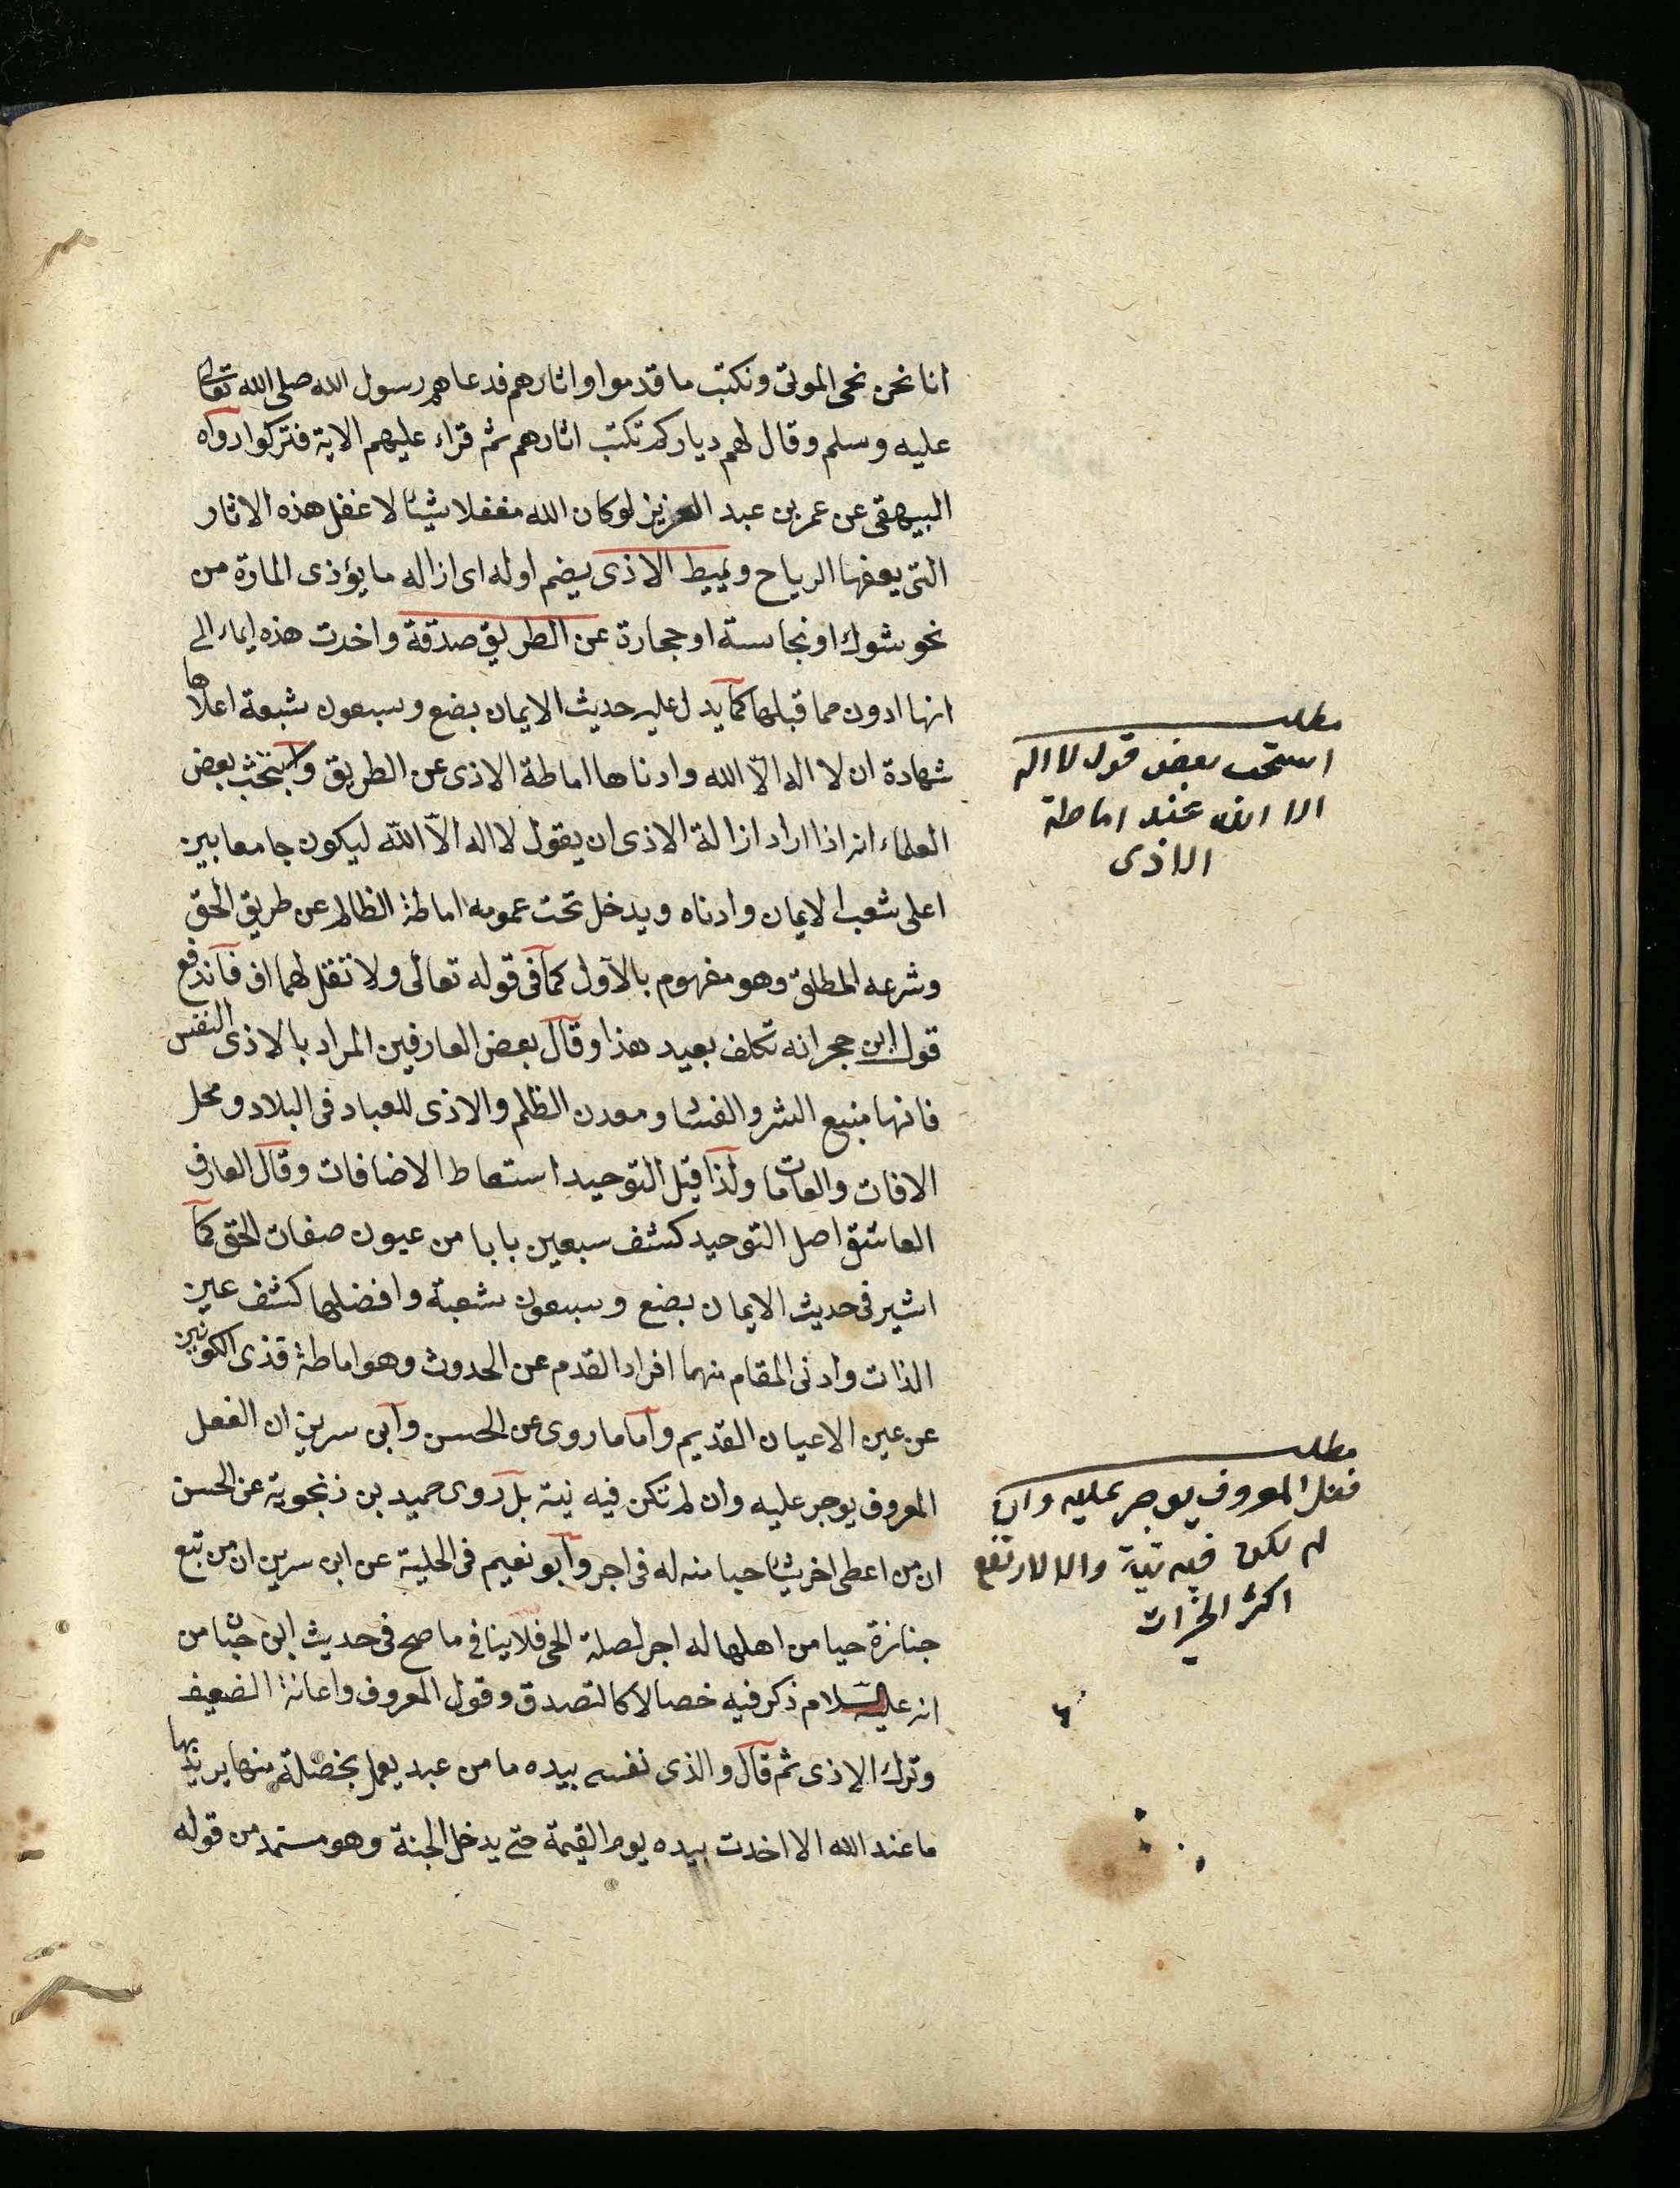 انا نحن نحى الموتى ونكتب ما قدموا واثارهم فدعاهم رسول الله صلى الله تعالى
عليه وسلم وقال لهم دياركم تكتب اثاركم ثم قراء عليهم الاية فتركوا رواه
البيهقى عن عمر بن عبد العزيز لوكان الله مغفلا شيئا لاغفل هذه الاثار
التى يعفها الرياح ويميط الاذى بضم اوله اى ازاله ما يؤذى المارة من
نحو شوك او نجاسة او حجارة عن الطريق صدقة واخرت هذه ايماء الى
انها ادون مما قبلها كما يدل عليه حديث الايمان بضع وسبعون شعبة اعلاها
شهادة ان لا اله الّا الله وادناها اماطة الاذى عن الطريق واستحب بعض
العلماء انه اذا اراد ازالة الاذى ان يقول لا اله الّا الله ليكون جامعا بين
اعلى شعب الايمان وادناه ويدخل تحت عمومه اماطة الظالم عن طريق الحق
وشرعه المطلق وهو مفهوم بالاول كما فى قوله تعالى ولا تقل لهما اف فاندفع
قول ابن حجر انه تكلف بعيد هذا وقال بعض العارفين المراد بالاذى النفس
فانها منبع الشر والفساد ومعدن الظلم والاذى للعباد فى البلاد ومحل
الافات والعاهات ولذا قيل التوحيد اسقاط الاضافات وقال العارف
العاشق اصل التوحيد كشف سبعين بابا من عيون صفات الحق كما
اشير فى حديث الايمان بضع وسبعون شعبة وافضلها كشف عين
الذات وادنى المقام منهما افراد القدم عن الحدوث وهو اماطة قذى الكونين
عن عين الاعيان القديم واما ما روى عن الحسن وابن سرين ان الفعل
المعروف يوجر عليه وان لم تكن فيه نية بل روى حميد بن زنجوية عن الحسن
ان من اعطى اخر شيئا حيا منه له فى اجر وابو نعيم فى الحلية عن ابن سرين ان من تبع
جنازة حيا من اهلها له اجر لصلة الحى فلا ينافى ما صح فى حديث ابن حبان من
انه عليه السلام ذكر فيه خصالا كالتصدق وقول المعروف واعانة الضعيف
وترك الاذى ثم قال والذى نفسى بيده ما من عبد يعمل بخصلة منها يريد بها
ما عند الله الا اخذت بيده يوم القيمة حتى يدخل الجنة وهو مستمد من قوله
مطلب
استحب بعض قول لا اله
الا الله عند اماطة
الاذى
مطلب
فعل المعروف يوجر عليه وان
لم يكن فيه نية والا لارتفع
اكثر الخيرات